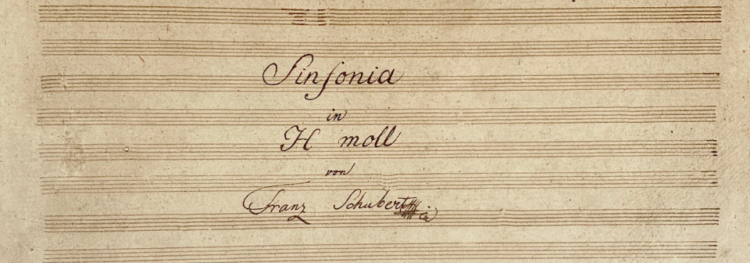 Sinfonia
in
H moll
von
Franz Schubert